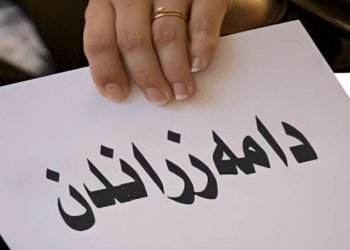 دامەزراندن